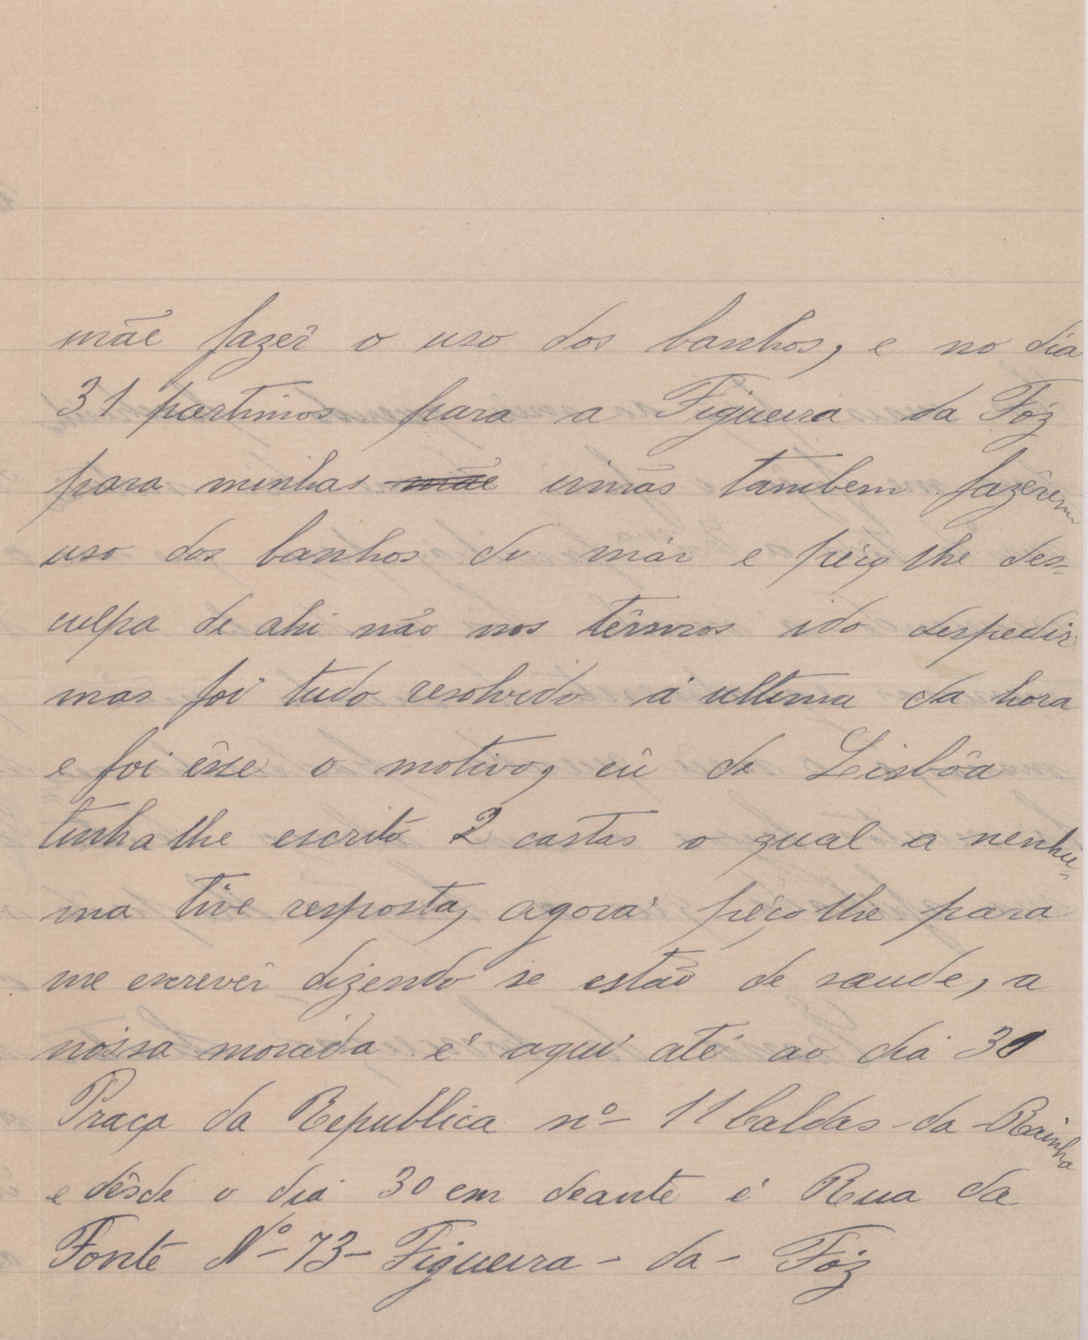 mãe fazêr o uso dos banhos, e no dia
31 partimos para a Figueira da Fóz
para minhas mãe irmãs tambem fazêrem
uso dos banhos do már e péço lhe des-
culpa de ahi não nos têrmos ido despedir
mas foi tudo resolvido á ultima da hora
e foi êsse o motivo, eû de Lisbôa
tinha lhe escrito 2 cartas o qual a nenhu-
ma tive resposta, agora péço lhe para
me escrevêr dizendo se estão de saude, a
nossa moráda é aqui até ao dia 30
Praça da Republica nº 11 Caldas da Rainha
e dêsde o dia 30 em deante é Rua da
Fonte Nº 73 - Figueira - da - Fóz